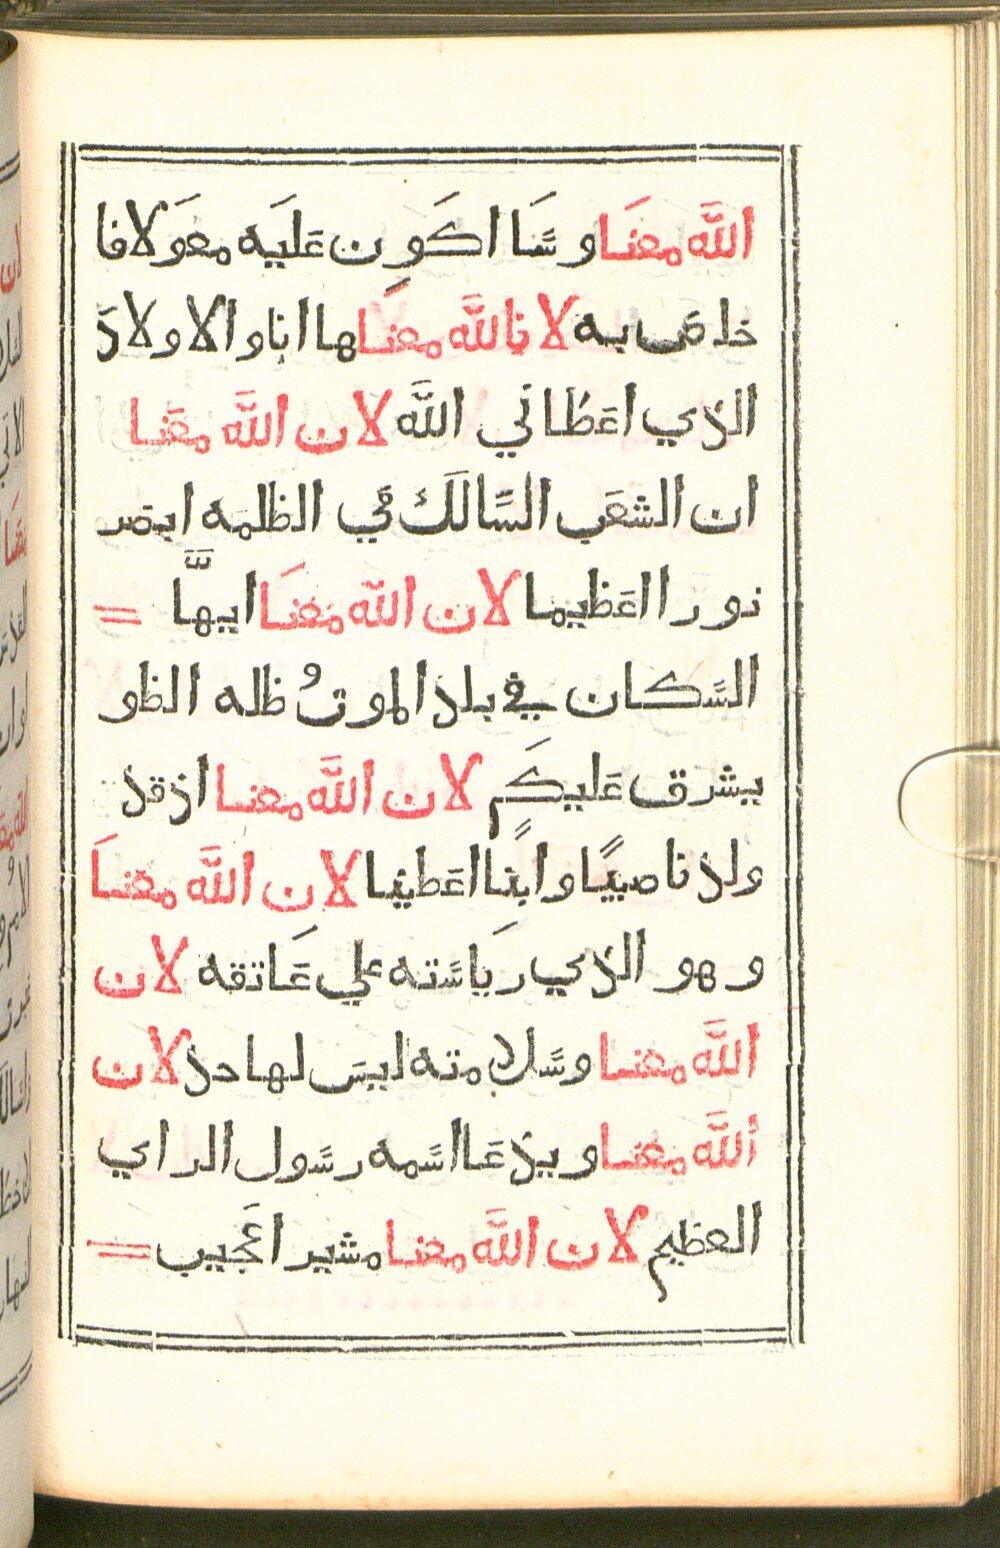 الله معنا وسَا اكَون عَليَه معوَلا فا
خلاص به لان الله معنا ها انا والاولاد
الذي اعَطاني اللَّه لان اللَّه معَنا
ان الشعَب السَّالَك في الظلمَه ابصر
نورا اعَظيما لان اللَّه مَعنَا ايهَّا =
السَّكان في بلد الموت وظله الظو
يشرق عَليكَم لان اللَّه معنا اذ قد
ولد نا صبيًا وابنًا اعَطينا لان اللَّه معنَا
وهو الذي ريَاسَته علي عَاتقه لان
اللَّه معنا وسَّلامته ليسَ لها حد لان
اللَّه معنا ويدعَا اسَمه رسَول الراي
العظيم لان اللَّه معنا مشير اعَجيب =